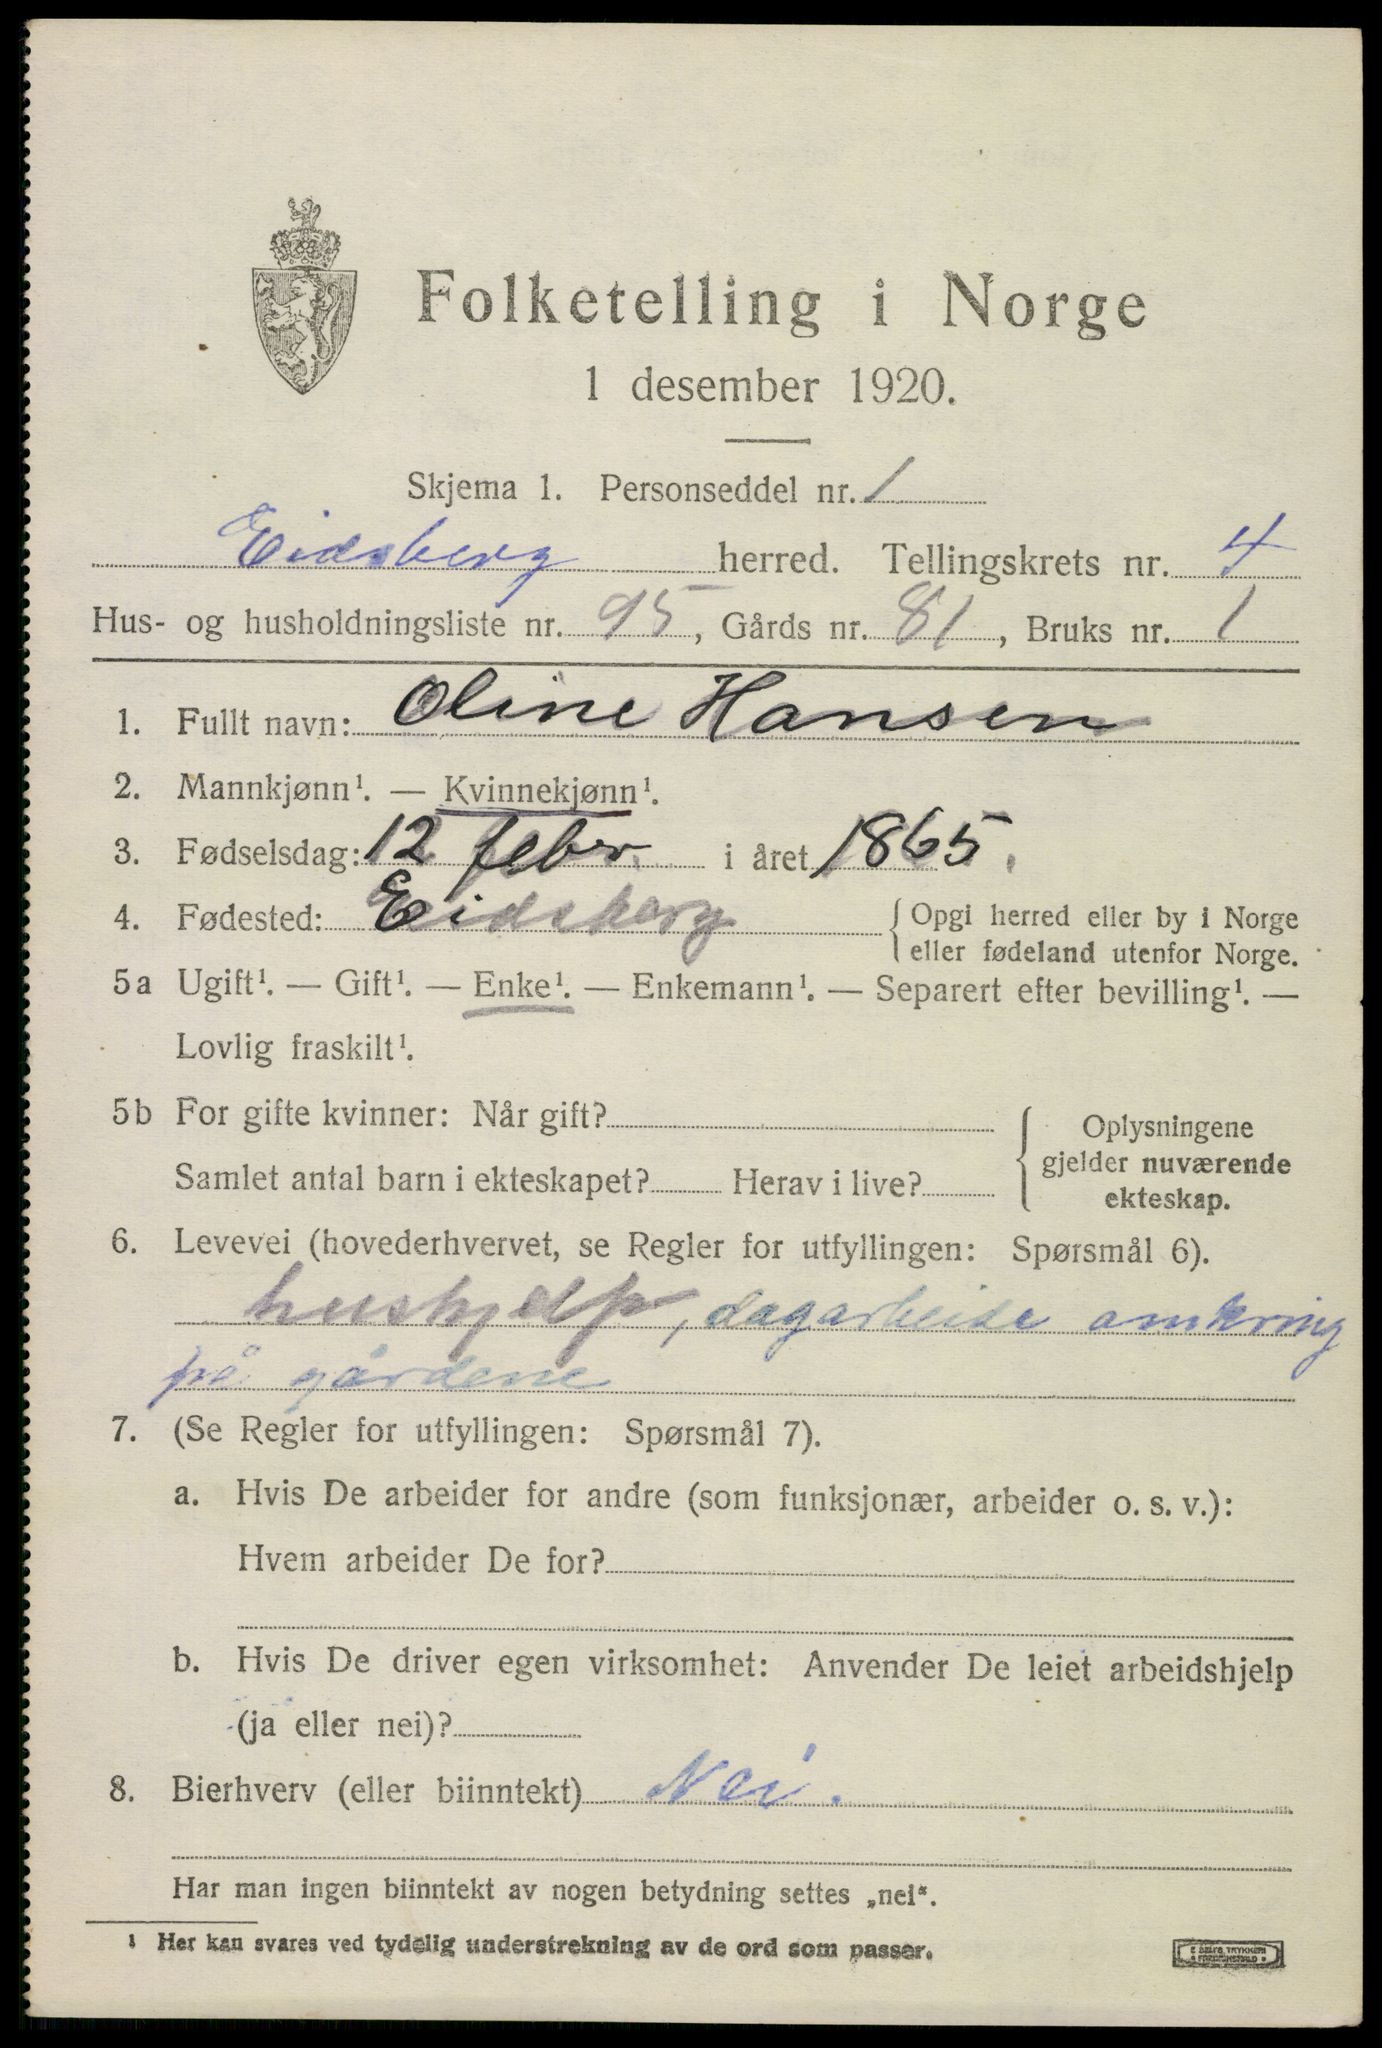 Folketelling i Norge
1 desember 1920.
Skjema 1. Personseddel nr. 1
Eidsberg herred. Tellingskrets nr. 4
Hus- og husholdningsliste nr. 95, Gårds nr. 81, Bruks nr. 1
1. Fullt navn: Oline Hansen
2. Mannkjønn¹. — Kvinnekjønn¹.
3. Fødselsdag: 12 febr. i året 1865.
4. Fødested: Eidsberg { Opgi herred eller by i Norge
eller fødeland utenfor Norge.
5a Ugift¹. — Gift¹. — Enke¹. — Enkemann¹. — Separert efter bevilling¹. —
Lovlig fraskilt¹.
5b For gifte kvinner: Når gift? } Oplysningene
gjelder nuværende
Samlet antal barn i ekteskapet? Herav i live?
ekteskap.
6. Levevei (hovederhvervet, se Regler for utfyllingen: Spørsmål 6).
hushjelp, dagarbeide omkring
på gårdene
7. (Se Regler for utfyllingen: Spørsmål 7).
a. Hvis De arbeider for andre (som funksjonær, arbeider o. s. v.):
Hvem arbeider De for?
b. Hvis De driver egen virksomhet: Anvender De leiet arbeidshjelp
(ja eller nei)?
8. Bierhverv (eller biinntekt) Nei.
Har man ingen biinntekt av nogen betydning settes „nei“.
¹ Her kan svares ved tydelig understrekning av de ord som passer.